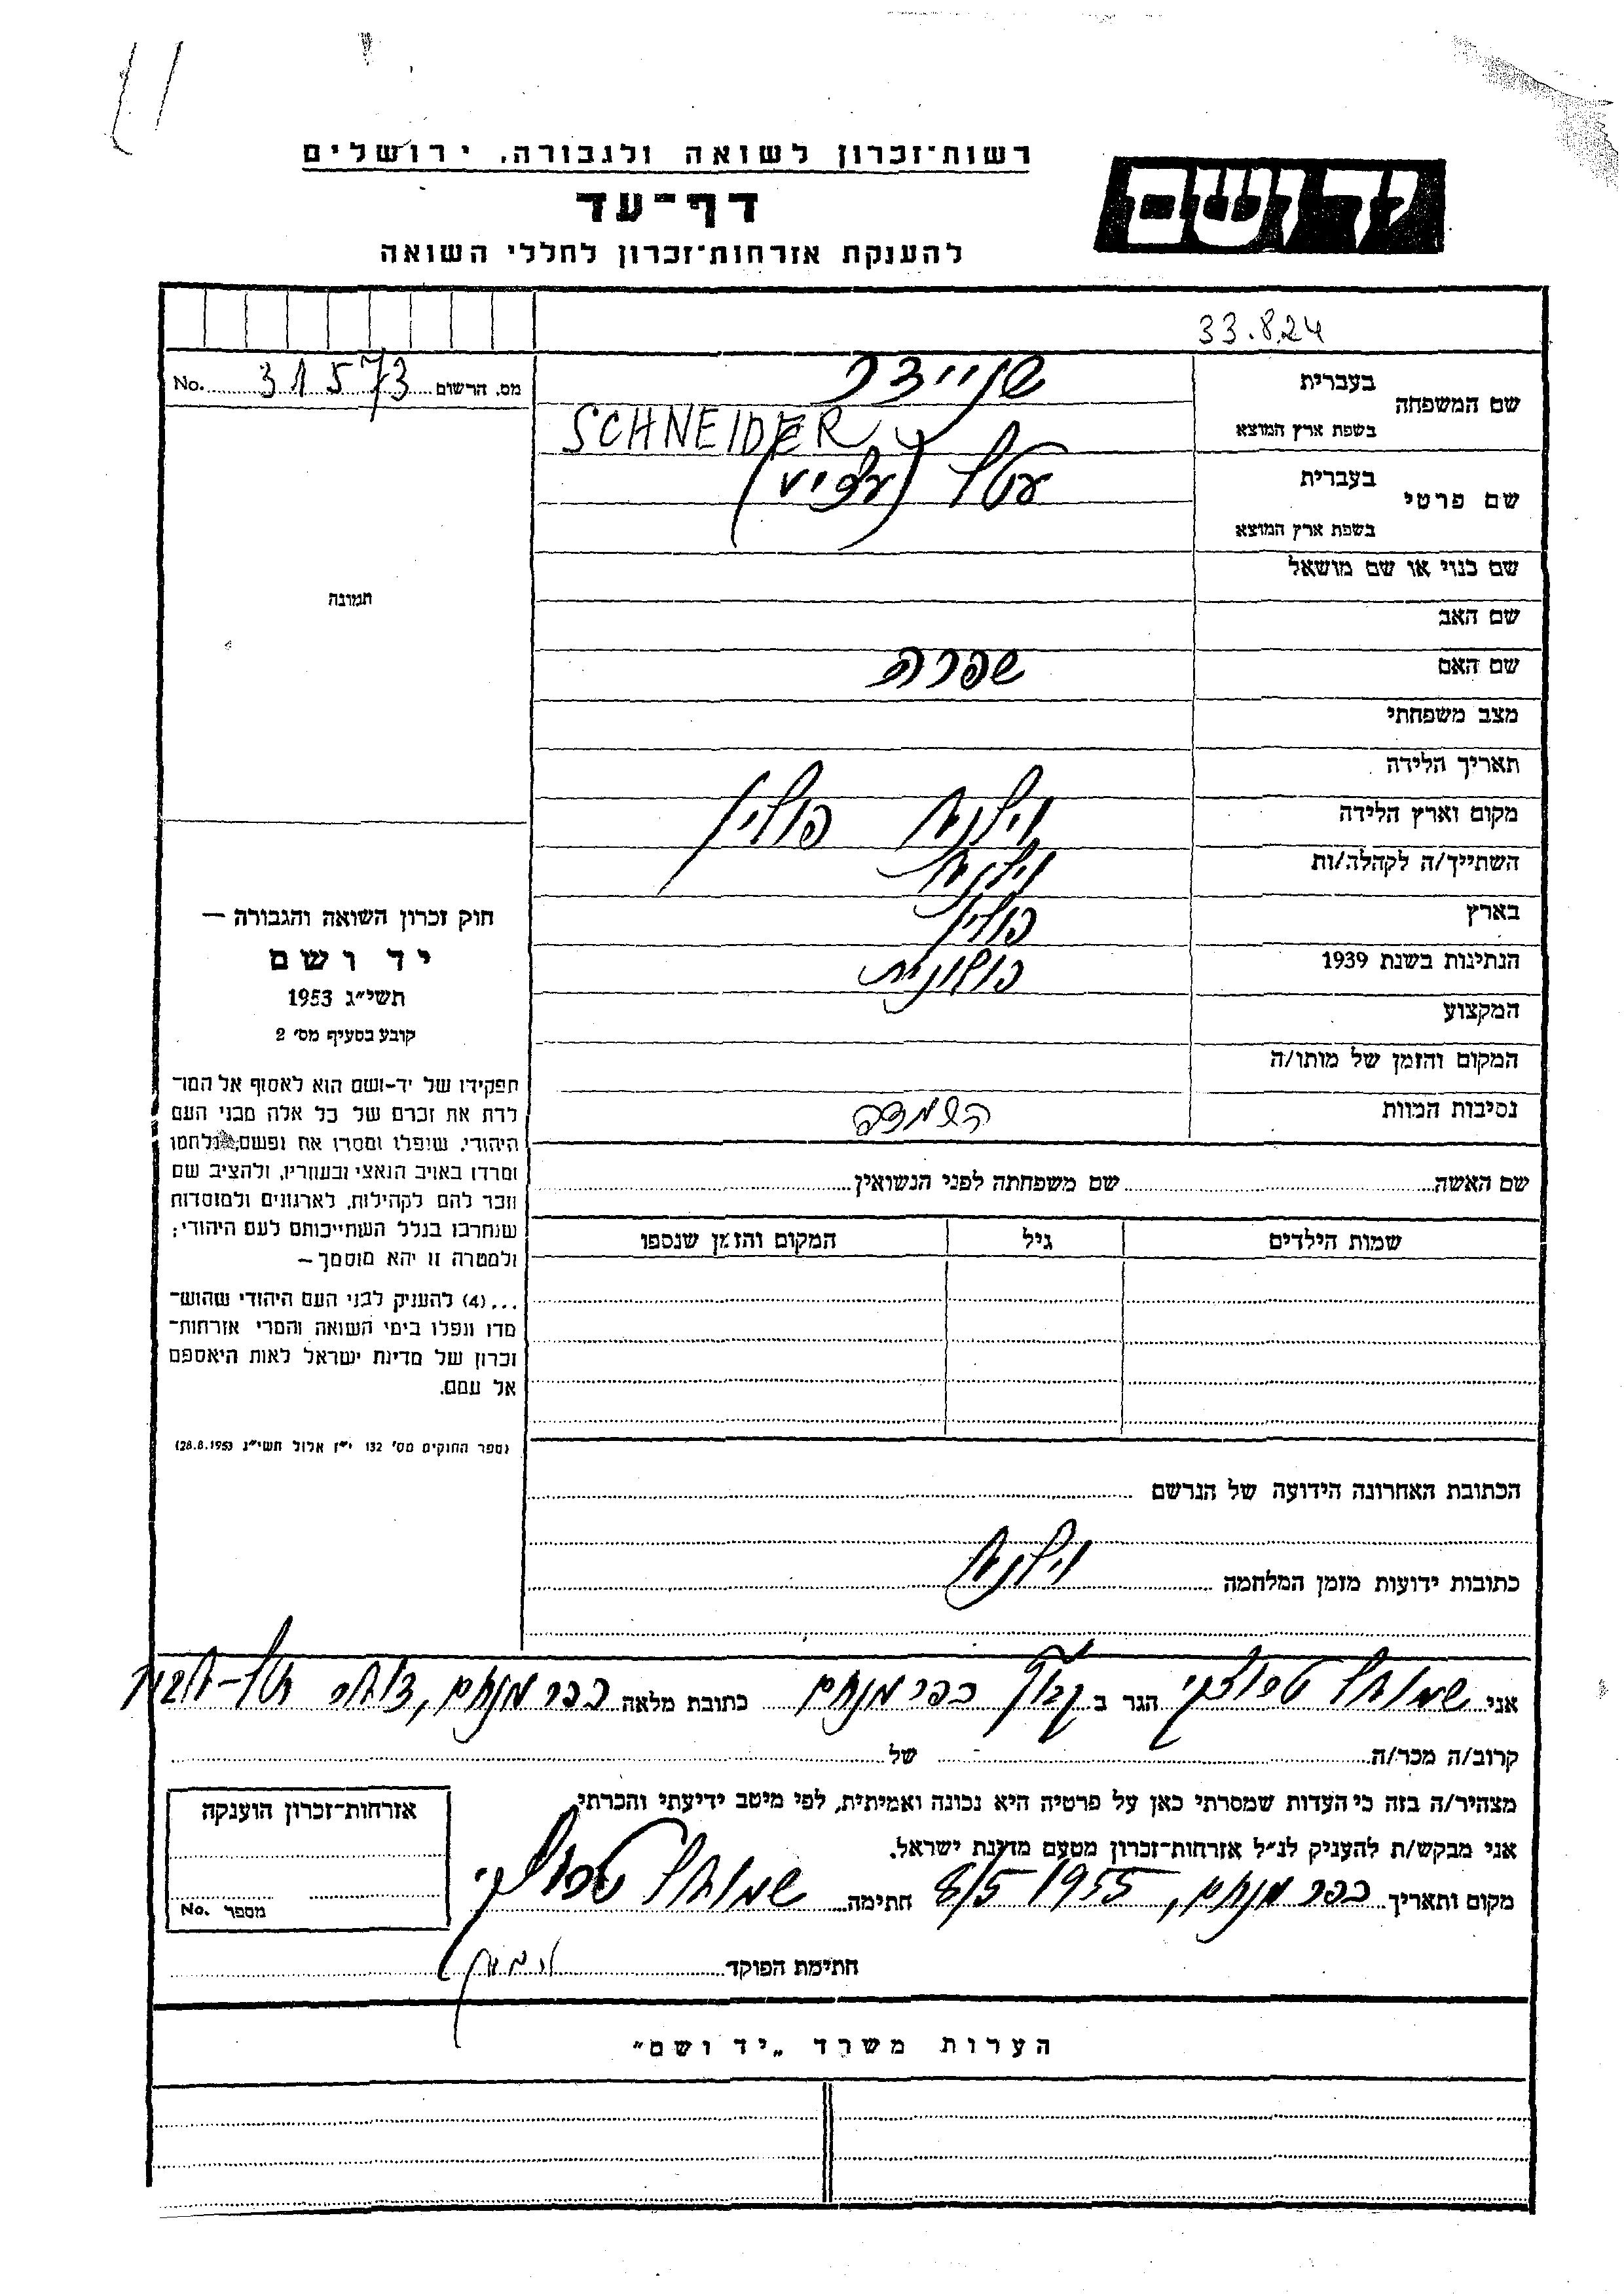 רשות־זכרון לשואה ולגבורה, ירושלים
יד ושם
דף־עד
להענקת אזרחות־זכרון לחללי השואה
33.824
No. 31573 מס. הרשום
שם המשפחה
בעברית שניידר
בשפת ארץ המוצא SCHNEIDER
שם פרטי
בעברית
בשפת ארץ המוצא
שם כנוי או שם מושאל
תמונה
שם האב
שם האם שפרה
מצב משפחתי
תאריך הלידה
מקום וארץ הלידה וילנה פולין
השתייך/ה לקהלה/ות וילנה
בארץ פולין
הנתינות בשנת 1939 פולונית
המקצוע
המקום והזמן של מותו/ה
נסיבות המוות השמדה
חוק זכרון השואה והגבורה —
יד ושם
תשי״ג 1953
קובע בסעיף מס׳ 2
תפקידו של יד-ושם הוא לאסוף אל המו־
לדת את זכרם של כל אלה מבני העם
היהודי, שנפלו ומסרו את נפשם, נלחמו
ומרדו באויב הנאצי ובעוזריו, ולהציב שם
וזכר להם לקהילות, לארגונים ולמוסדות
שנחרבו בגלל השתייכותם לעם היהודי;
ולמטרה זו יהא מוסמך —
...(4) להעניק לבני העם היהודי שהוש־
מדו ונפלו בימי השואה והמרי אזרחות־
זכרון של מדינת ישראל לאות היאספם
אל עמם.
(ספר החוקים מס׳ 132 י״ז אלול תשי״ג 28.8.1953)
שם האשה שם משפחתה לפני הנשואין
שמות הילדים גיל המקום והזמן שנספו
הכתובת האחרונה הידועה של הנרשם
כתובות ידועות מזמן המלחמה וילנה
אני שמואל הגר ב כפר מנחם כתובת מלאה כפר מנחם,
קרוב/ה מכר/ה של
מצהיר/ה בזה כי העדות שמסרתי כאן על פרטיה היא נכונה ואמיתית, לפי מיטב ידיעתי והכרתי.
אני מבקש/ת להעניק לנ״ל אזרחות־זכרון מטעם מדינת ישראל.
מקום ותאריך כפר מנחם, 8/5 1955 חתימה שמואל
חתימת הפוקד
אזרחות־זכרון הוענקה
מספר No.
הערות משרד „יד ושם״